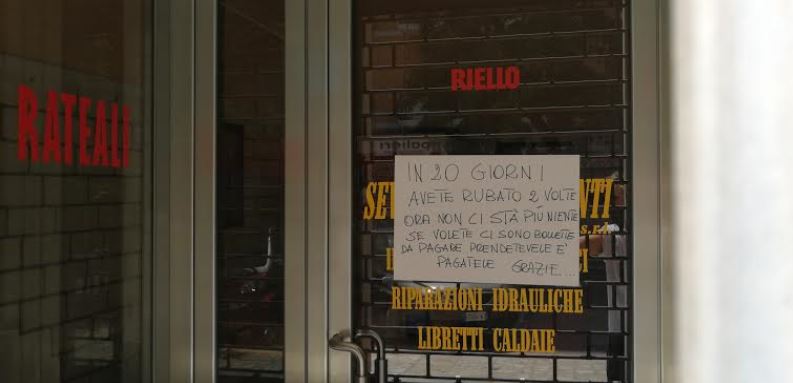 RATEALI
RIELLO
IN 20 GIORNI
AVETE RUBATO 2 VOLTE
ORA NON CI STÀ PIÙ NIENTE
SE VOLETE CI SONO BOLLETTE
DA PAGARE PRENDETEVELE E'
PAGATELE GRAZIE...
s.r.l.
RIPARAZIONI IDRAULICHE
LIBRETTI CALDAIE